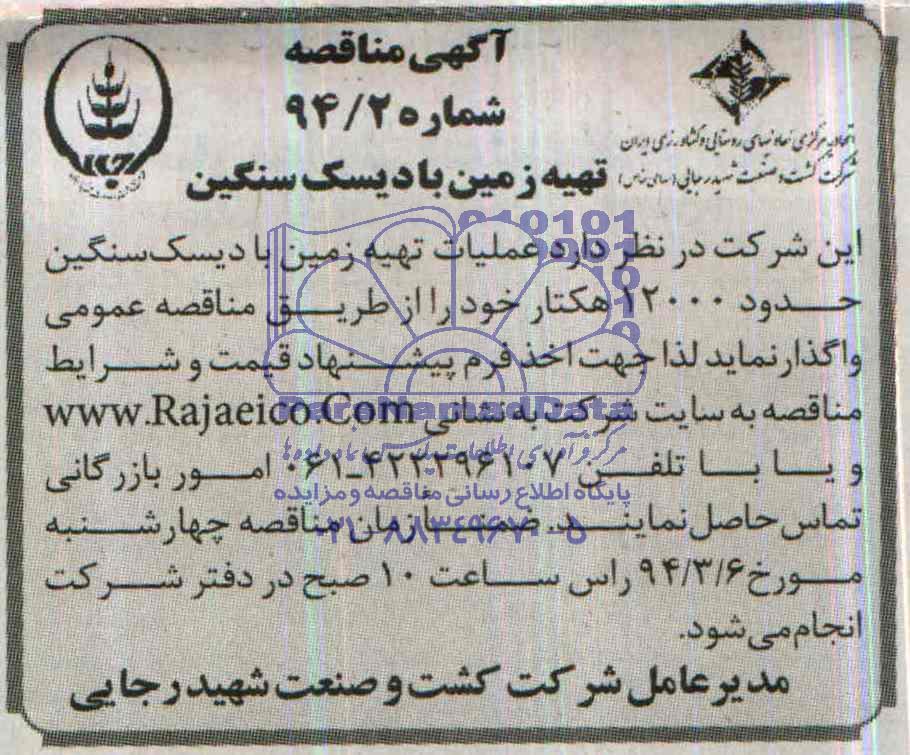 آگهی مناقصه
شماره ۹۴/۲
تهیه زمین با دیسک سنگین
اتحادیه مرکزی تعاونیهای روستایی و کشاورزی ایران
شرکت کشت و صنعت شهید رجایی (سهامی خاص)
این شرکت در نظر دارد عملیات تهیه زمین با دیسک سنگین
حدود ۱۲۰۰۰ هکتار خود را از طریق مناقصه عمومی
واگذار نماید لذا جهت اخذ فرم پیشنهاد قیمت و شرایط
مناقصه به سایت شرکت به نشانی www.Rajaeico.Com
و یا با تلفن ۰۶۱-۴۲۲۲۹۶۱۰۷ امور بازرگانی
تماس حاصل نمایند. ضمنا زمان مناقصه چهارشنبه
مورخ ۹۴/۳/۶ راس ساعت ۱۰ صبح در دفتر شرکت
انجام می شود.
مدیر عامل شرکت کشت و صنعت شهید رجایی
ParsNamadData
پایگاه اطلاع رسانی مناقصه و مزایده
۰۲۱-۸۸۳۴۹۶۷۰-۵